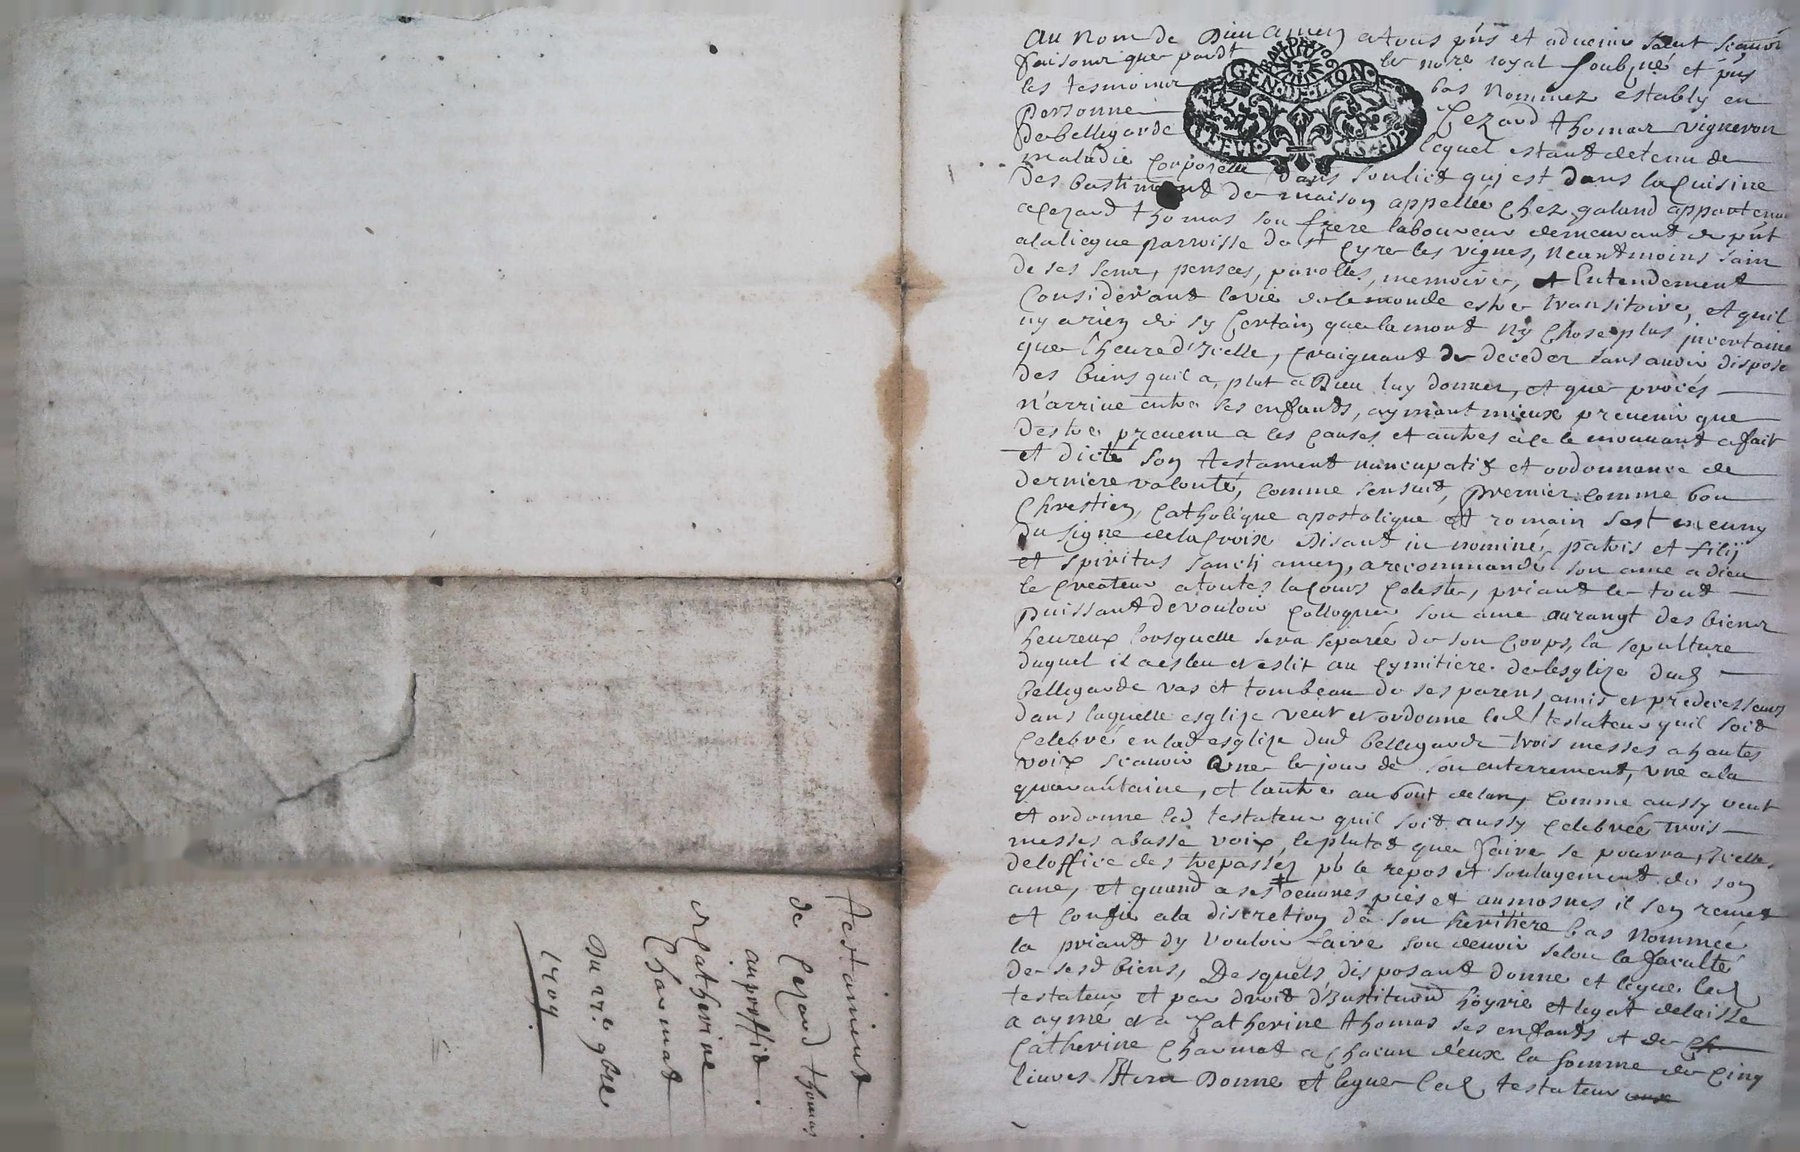 Testament
de Cezard thomas
au proffict
Catherine
Charmat
Du 22e 9bre
1709
Au nom de Dieu Amen a tous pñs et aduenir salut scauoir
faisons que pardt le nore royal soubsné et pñs
les tesmoins bas nommez estably en
personne Cezard thomas vigneron
de bellegarde lequel estant detenu de
maladie corporelle dans son lict qui est dans la cuisine
des bastiment de maison appellée chez galand appartenant
a Cezard thomas son frere laboureur demeurant de pñt
a la licque parroisse de st Cyre les vignes, neantmoins sain
de ses sens, pensees, parolles, memoires, et Entendement
Considerant la vie de le monde estre transitoire, et quil
ny a rien de sy Certain que la mort ny chose plus incertaine
que l'heure d'Icelle, craignant de deceder sans auoir disposé
des biens quil a plut a Dieu luy donner, et que procés
n'arriue entre ses enfants, aymant mieux preuenir que
destre preuenu a ces causes et autres a ce le mouuant a fait
et dicté son testament nuncupatif et ordonnance de
derniere valonté, comme sensuit, premier comme bon
Chrestien, Catholique apostolique et romain sest muny
du signe de la Croix Disant in nominé, patris et filij
et spiritus sancti amen, a recommandé son ame a dieu
le Createur a toutes la Cours Celeste, priant le tout
puissant de vouloir Colloquer son ame au rangt des biens
heureux lorsquelle sera separée de son Corps, la sepulture
duquel il a esleu et eslit au Cymitiere de lesglize dud
bellegarde vas et tombeau de ses parens amis et predecesseurs
dans laquelle esglize veut et ordonne led testateur quil soit
Celebré en lad esglize dud bellegarde trois messes a hautes
voix scauoir une le jour de son enterrement, vne a la
quarantaine, et lautre au bout de lan, comme aussy veut
et ordonne led testateur quil soit aussy Celebrée trois
messes a basse voix, le plutot que faire se pourra, Icelles
de loffice des trepassez pb le repos et soulagement de son
ame, et quand a ses oeuures pies et aumosnes il sen remet
et confie a la discretion de son heritiere bas nommée
la priant dy vouloir faire son deuoir selon la faculté
de sesd biens, Desquels disposant donne et legue led
testateur et par droit d'Institution hoyrie et legat delaisse
a aymé et a Catherine thomas ses enfants et de
Catherine Charmat a chacun deux la somme de Cinq
liures Item Donne et legue led testateur